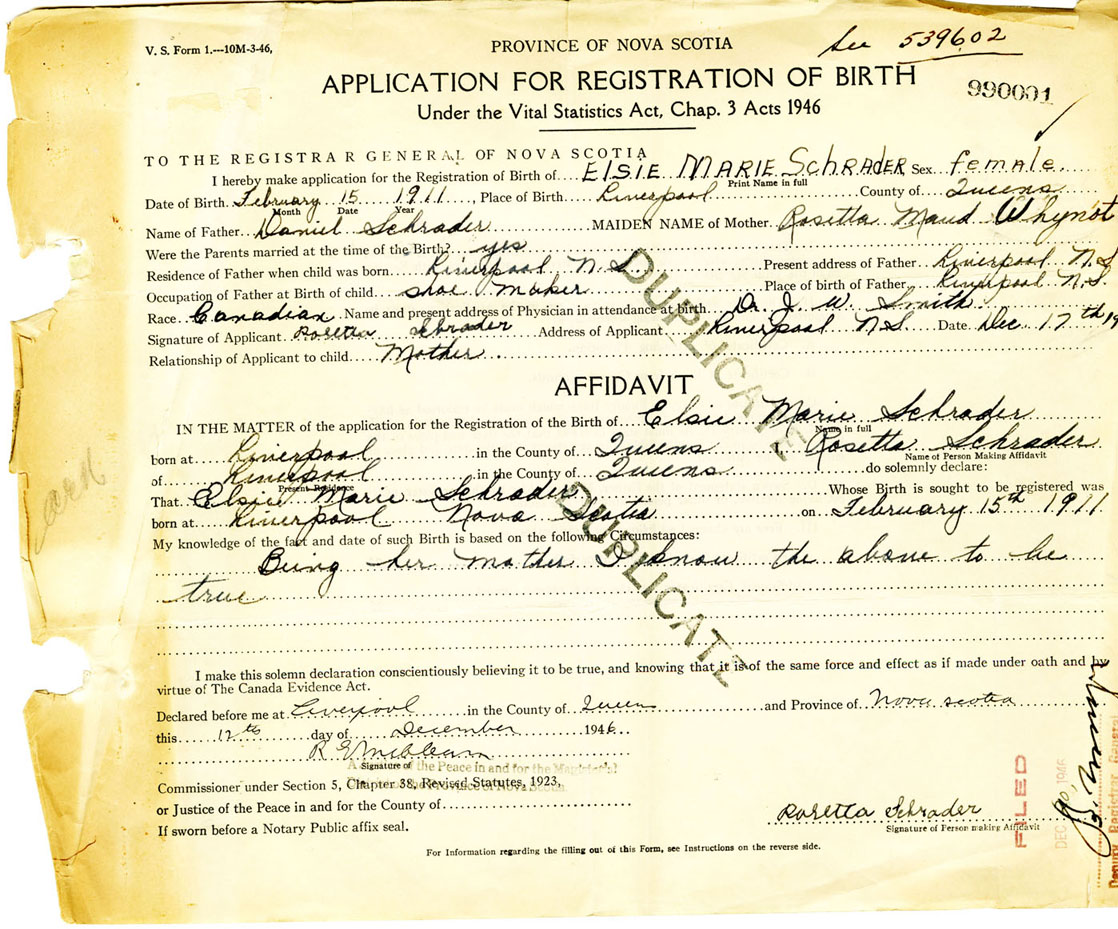 V. S. Form 1.---10M-3-46,
PROVINCE OF NOVA SCOTIA
See 539602
APPLICATION FOR REGISTRATION OF BIRTH
990001
Under the Vital Statistics Act, Chap. 3 Acts 1946
TO THE REGISTRAR GENERAL OF NOVA SCOTIA
I hereby make application for the Registration of Birth of ELSIE MARIE SCHRADER Sex female
Print Name in full
Date of Birth February 15 1911, Place of Birth Liverpool County of Queens
Month Date Year
Name of Father Daniel Schrader MAIDEN NAME of Mother Rosetta Maud Whynot
Were the Parents married at the time of the Birth? yes
Residence of Father when child was born Liverpool N S Present address of Father Liverpool N.S
Occupation of Father at Birth of child shoe maker Place of birth of Father Liverpool N.S.
Race Canadian Name and present address of Physician in attendance at birth Dr. J. W. Smith
Signature of Applicant Rosetta Schrader Address of Applicant Liverpool N S Date Dec 17th 19
Relationship of Applicant to child Mother
DUPLICATE
AFFIDAVIT
IN THE MATTER of the application for the Registration of the Birth of Elsie Marie Schrader
Name in full
born at Liverpool in the County of Queens Rosetta Schrader
Name of Person Making Affidavit
of Liverpool in the County of Queens do solemnly declare:
Present Residence
That Elsie Marie Schrader Whose Birth is sought to be registered was
born at Liverpool Nova Scotia on February 15th 1911
DUPLICATE
My knowledge of the fact and date of such Birth is based on the following Circumstances:
Being her mother I know the above to be
true
I make this solemn declaration conscientiously believing it to be true, and knowing that it is of the same force and effect as if made under oath and by
virtue of The Canada Evidence Act.
Declared before me at Liverpool in the County of Queens and Province of Nova Scotia
this day of December 1946
Signature of
Commissioner under Section 5, Chapter 38, Revised Statutes, 1923,
or Justice of the Peace in and for the County of
If sworn before a Notary Public affix seal.
Rosetta Schrader
Signature of Person making Affidavit
FILED
DEC 1946
Deputy Registrar General
For Information regarding the filling out of this Form, see Instructions on the reverse side.